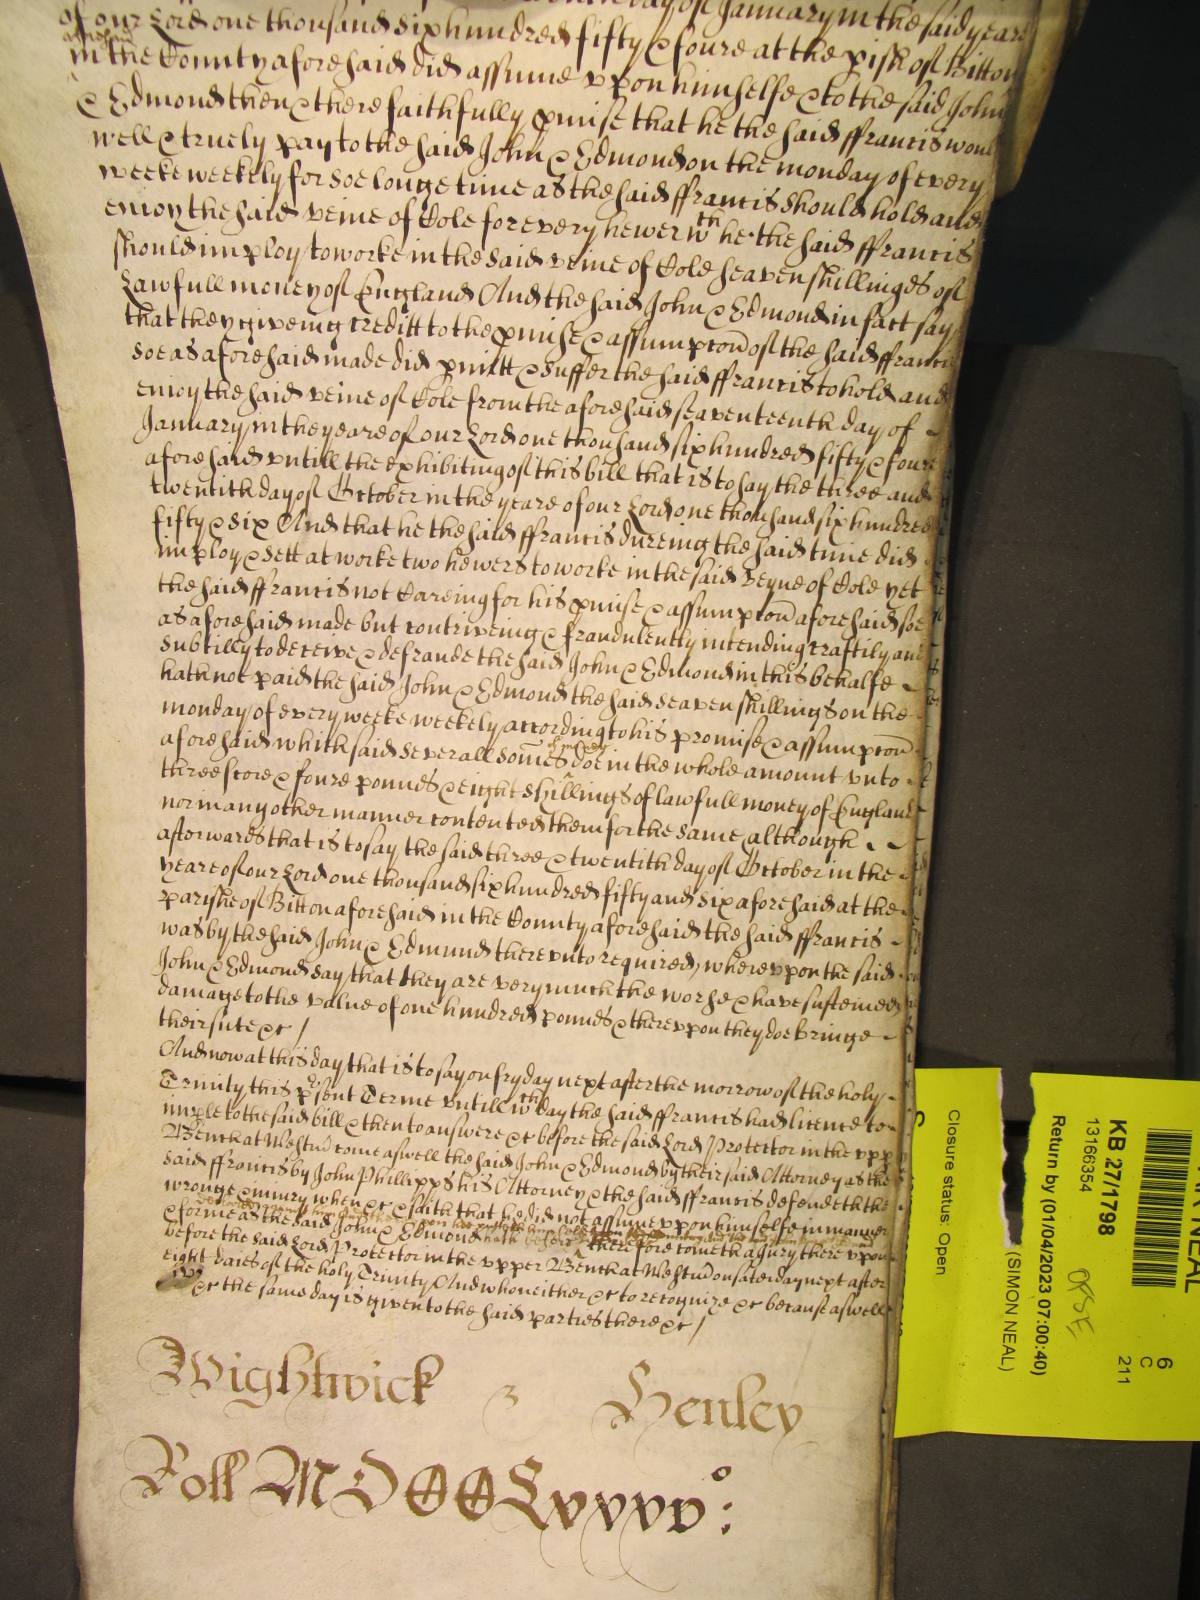 day of January in the said yeare
of our Lord one thousand six hundred fifty & foure at the pish of Bitton
aforesaid
in the County aforesaid did assume vpon himselfe & to the said John
& Edmond then & there faithfully pmise that he the said ffrancis woul
well & truely pay to the said John & Edmond on the monday of every
weeke weekely for soe longe time as the said ffrancis should hold and
enioy the said veine of Cole for every hewer wth he the said ffrancis
should imploy to worke in the said veine of Cole seaven shillings of
Lawfull money of England And the said John & Edmond in fact say
that they giveing creditt to the pmise & assumpcon of the said ffranci
soe as aforesaid made did pmitt & suffer the said ffrancis to hold and
enioy the said veine of Cole from the aforesaid seaventeenth day of
January in the yeare of our Lord one thousand six hundred fifty & foure
aforesaid vntill the exhibiting of this bill that is to say the three and
twentith day of October in the yeare of our Lord one thousand six hundred
fifty & six And that he the said ffrancis dureing the said time did
imploy & sett at worke two hewers to worke in the said veyne of Cole yet
the said ffrancis not Careing for his pmise & assumpcon aforesaid soe
as aforesaid made but contriveing & fraudulently intending craftily and
subtilly to deceive & defraude the said John & Edmond in this behalfe
hath not paid the said John & Edmond the said seaven shillings on the
monday of every weeke weekely according to his promise & assumpcon
aforesaid which said severall somes of money doe in the whole amount vnto
threescore & foure pounds & eight shillings of lawfull money of England
nor in any other manner contented them for the same although
afterwards that is to say the said three & twentith day of October in the
yeare of our Lord one thousand six hundred fifty and six aforesaid at the
parishe of Bitton aforesaid in the County aforesaid the said ffrancis
was by the said John & Edmund therevnto required, wherevpon the said
John & Edmond say that they are very much the worse & have susteined
damage to the value of one hundred pounds & therevpon they doe bringe
their sute &c /
And now at this day that is to say on fryday next after the morrow of the holy
Trinity this psent Terme vntill wth day the said ffrancis had licence to
imple to the said bill & then to answere &c before the said Lord Protector in the vpp
Bench at Westmr come aswell the said John & Edmond by their said Attorney as the
said ffrancis by John Phillipps his Attorney & the said ffrancis defendeth the
wronge & iniury when &c & saith that he did not assume vpon himselfe in manner
& forme as the said John & Edmond hath before therefore cometh a Jury therevpon
before the said Lord Protector in the vpper Bench at Westmr on saterday next after
eight daies of the holy Trinity And who neither &c to recognize &c because aswell
&c the same day is given to the said parties there &c /
Wightwick & Henley
Roll MDCCLxxxvo:
KB 27/1798
13166354
Return by (01/04/2023 07:00:40)
(SIMON NEAL)
Closure status: Open
6
C
211